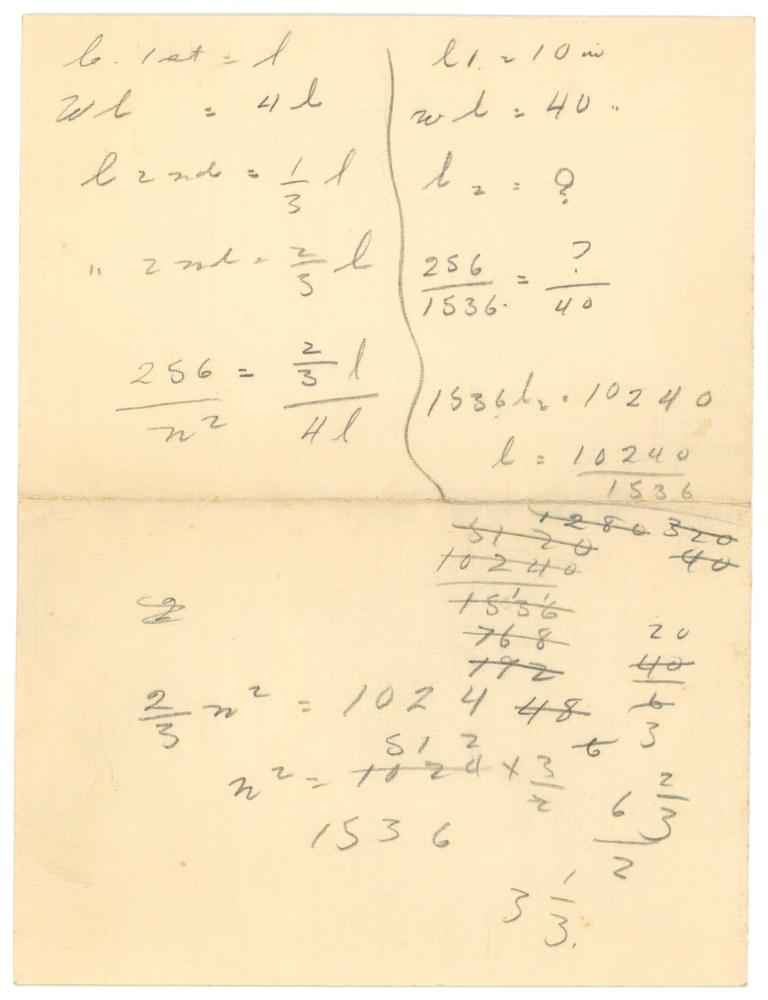 l. 1st = l
Wl = 4l
l 2nd = 1/3 l
" 2nd = 2/3 l
256/n² = 2/3 l / 4l
l1. = 10 in
wl = 40 "
l₂ = ?
256/1536. = ?/40
1536 l₂ = 10240
l = 10240/1536
1280 320
5120 40
10240
1536
768 20
192 40
2/3 n² = 1024 48 6
512 6 3
n² = 1024 × 3/2
1536
6 2/3
2
3 1/3.